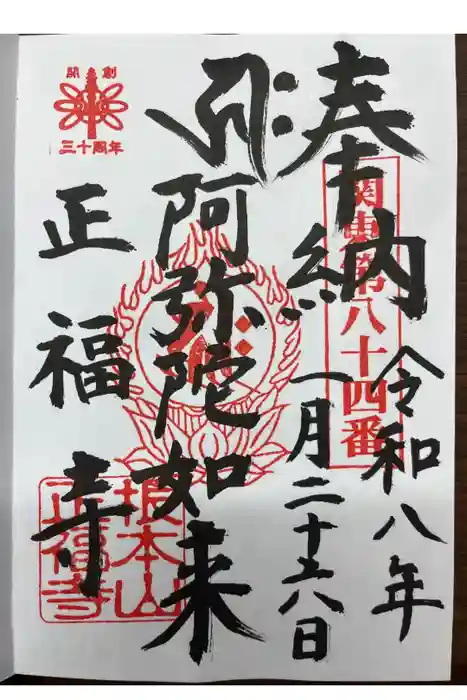 奉納
関東第八十四番
令和八年
一月二十六日
阿弥陀如来
正福寺
開創
三十周年
根本山
正福寺